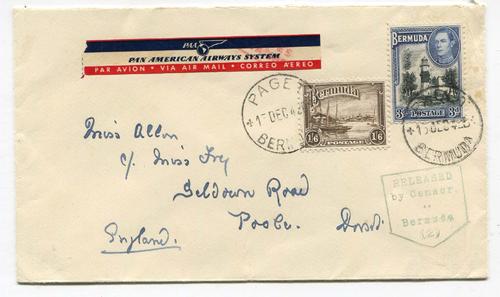 PAA
PAN AMERICAN AIRWAYS SYSTEM
PAR AVION • VIA AIR MAIL • CORREO AEREO
PAGET
+1 DEC 42
BERM
Bermuda
1/6 POSTAGE 1/6
BERMUDA
3d POSTAGE 3d
DEC 42
BERMUDA
RELEASED
by Censor.
Bermuda
(2)
Miss Allon
c/o Miss Fry
Seldown Road
Poole. Dorset.
England.